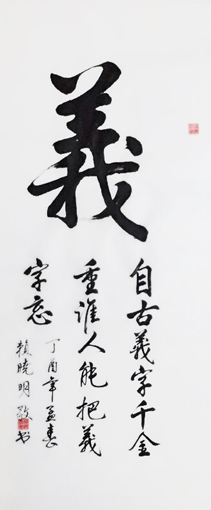 義
自古義字千金
重誰人能把義
字忘
丁酉年孟春
賴曉明敬書